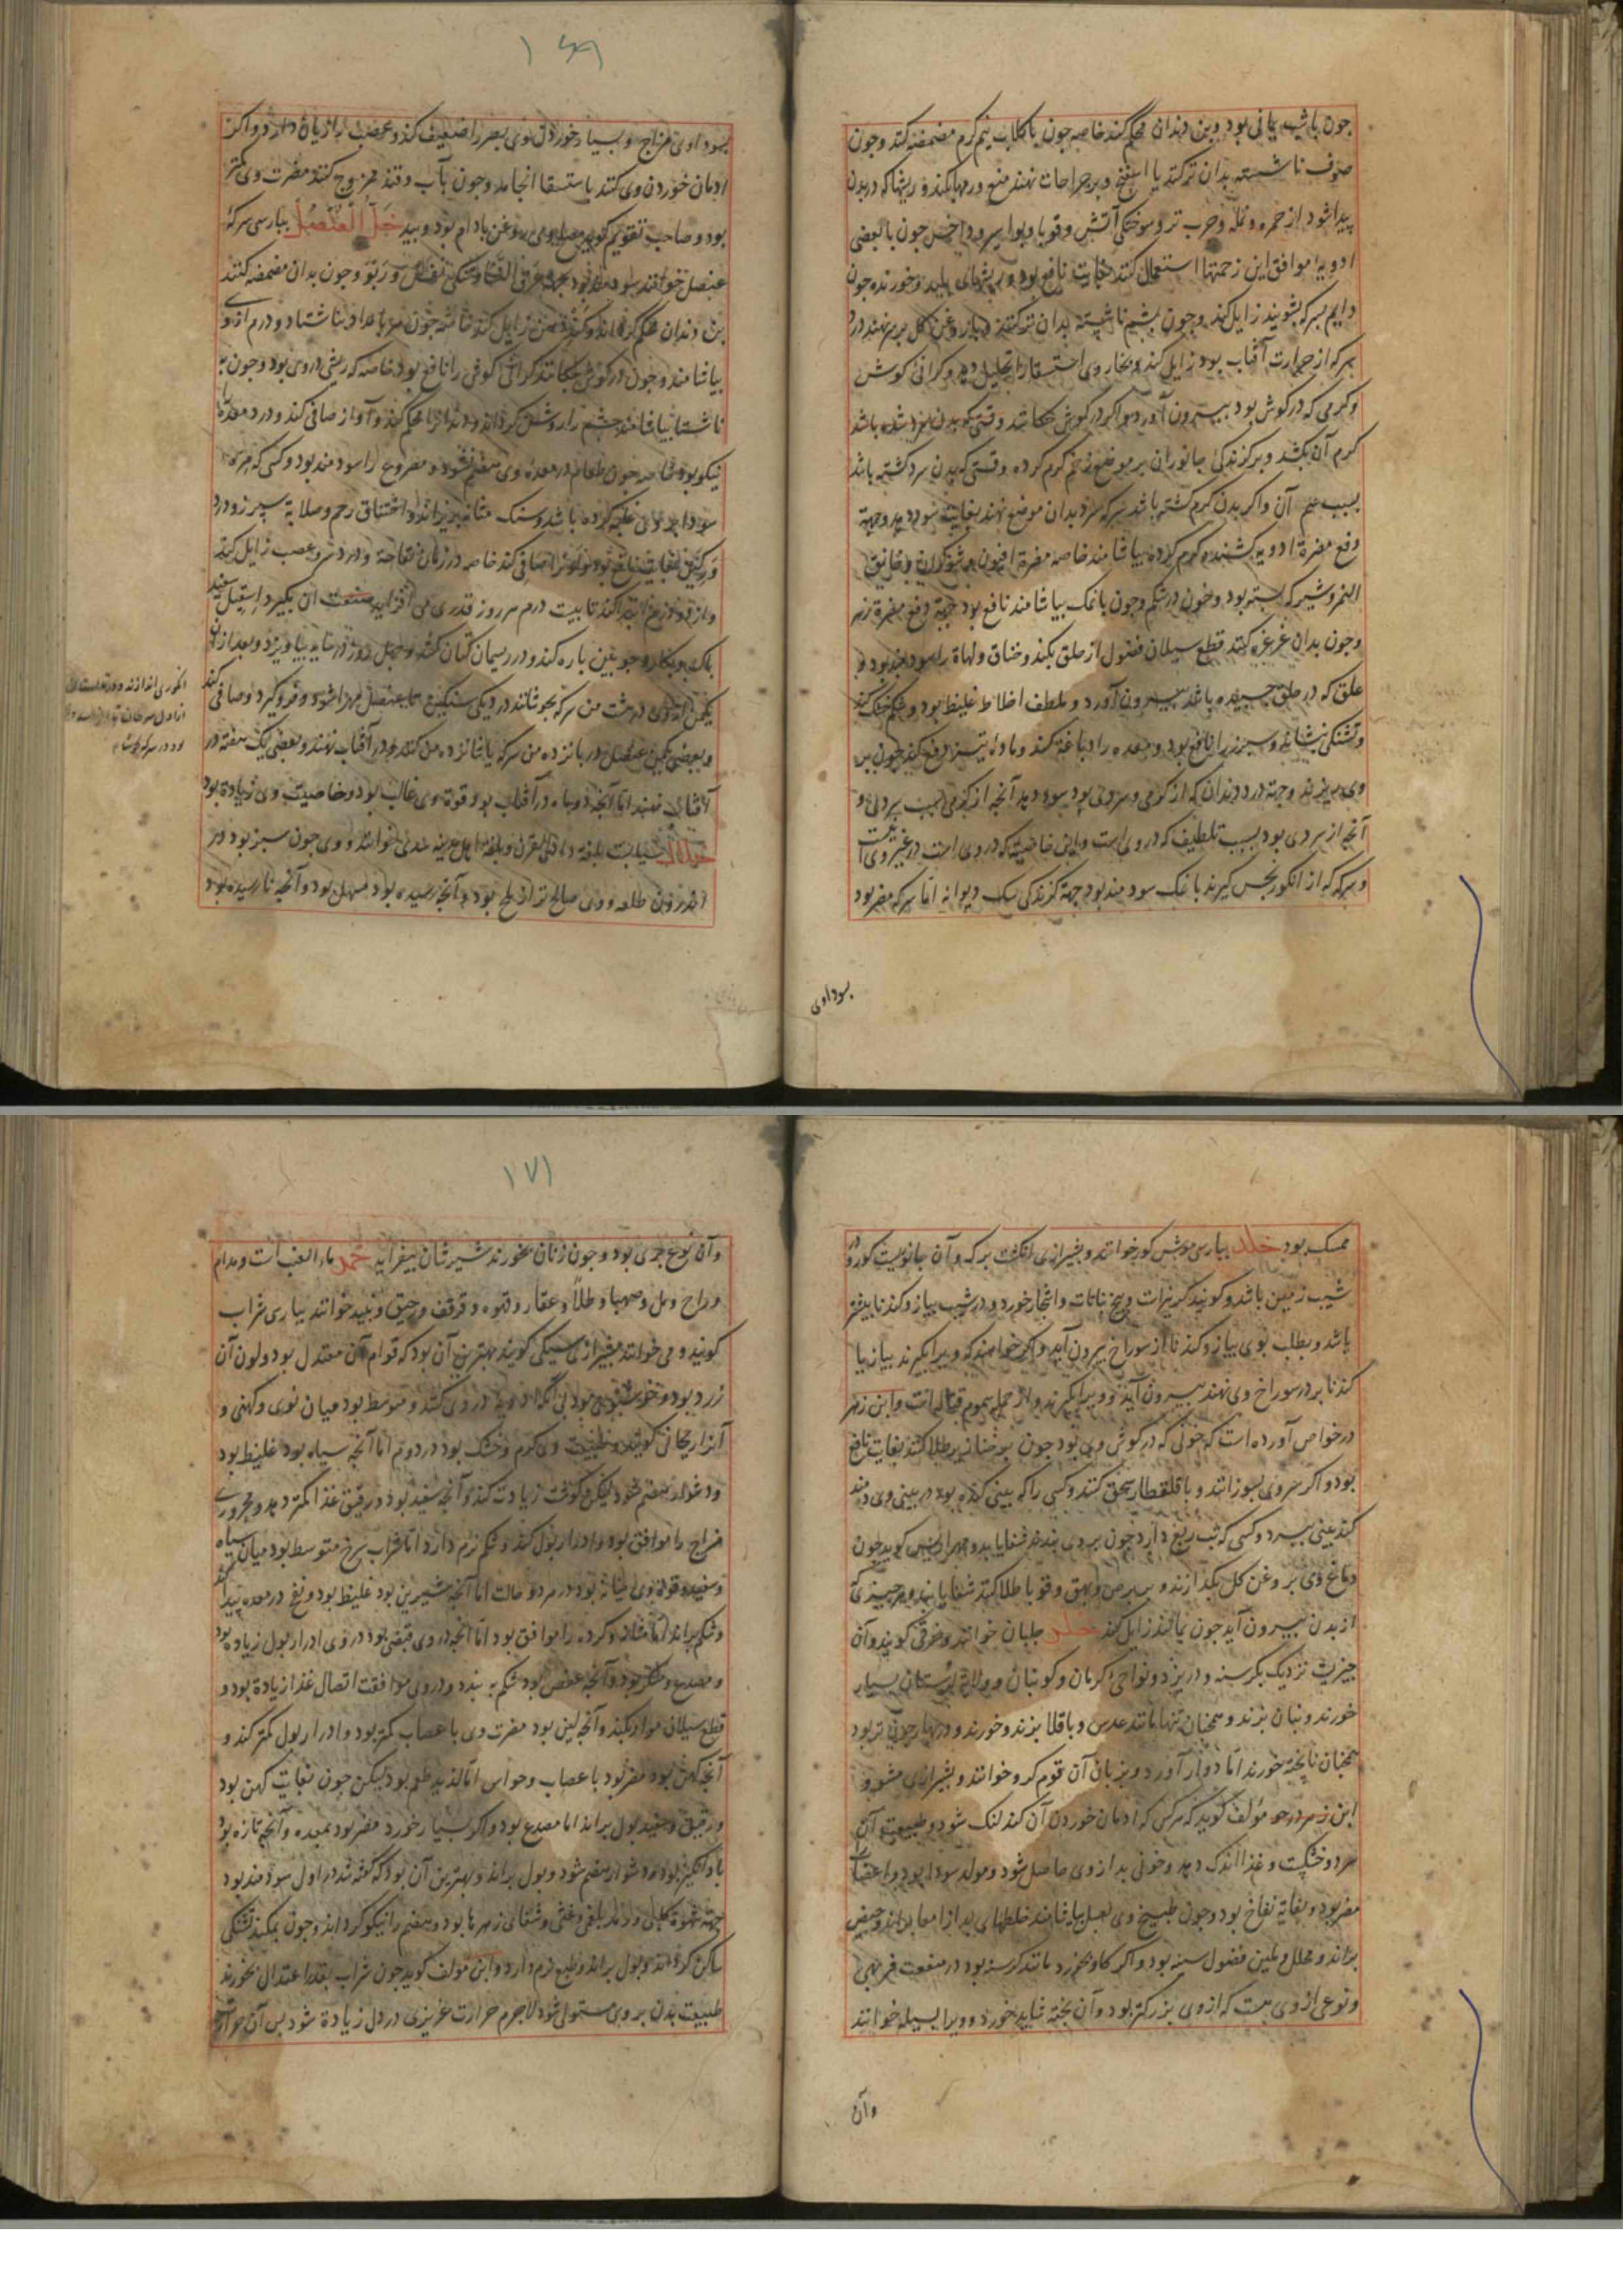 جون باشب یمانی بود و بن دندان محکم کند خاصه جون با کلاب نیم کرم مضمضه کند و جون
صوف ناشسته بدان تر کنند یا اسفنج و بر جراحات نهند منع ورمها بکند و ریشها که در بدن
پیدا شود از حمره و نمله و جرب تر و سوختگی آتش و قوبا و بواسیر و داخس جون با بعضی
ادویه موافق این زحمتها استعمال کنند بغایت نافع بود و ریشهای پلید و خورنده جون
دایم بسرکه بشویند زایل کند و جون بشم ناشسته بدان تر کنند و با روغن کل بر سر نهند درد
سر که از حرارت آفتاب بود زایل کند و بخار وی استسقا را تحلیل دهد و کرانی کوش
و کرمی که در کوش بود بیرون آورد و اکر در کوش جکانند وقتی که بدن باشد
کرم آن بکشد و بر کزندکی جانوران بر موضع زخم کرم کرده وقتی که بدن سرد کشته باشد
بسبب سم آن و اکر بدن کرم کشته باشد سرکه سرد بدان موضع نهند بغایت سود دهد و جهة
دفع مضرة ادویه کشنده کرم کرده بیاشامند خاصه مضرة افیون و شوکران و خانق
النمر و شیر که بسته بود و خون در شکم و جون با نمک بیاشامند نافع بود جهة دفع مضرة زهر
و جون بدان غرغره کنند قطع سیلان فضول از حلق بکند و خناق و لهاة را سودمند بود و
علق که در حلق جسبیده باشد بیرون آورد و ملطف اخلاط غلیظ بود و شکم خشک کند
و تشنکی بنشاند و سبرز را نافع بود و معده را دباغة کند و ماده تیز دفع کند جون بر
وی ریزند و جهة درد دندان که از کرمی و سردی بود سود دهد آنجه از کرمی بسبب سردی و
آنجه از سردی بود بسبب تلطیف که در وی است و این خاصیت که در وی است در غیر وی نیست
و سرکه که از انکور نجس کیرند با نمک سودمند بود جهة کزندکی سک دیوانه اما سرکه مضر بود
سوداوی
۱۶۹
سوداوی مزاج و بسیار خوردن وی بصر را ضعیف کند و عصب را زیان دارد و اکر
ادمان خوردن وی کنند باستسقا انجامد و جون بآب و قند ممزوج کنند مضرت وی کمتر
بود و صاحب تقویم کوید مصلح وی روغن بادام بود و بید خل العنصل ببارسی سرکه
عنصل خوانند سودمند بود جهة عرق النسا و تنکی نفس و ربو و جون بدان مضمضه کنند
بن دندان محکم کرداند و کند دهن زایل کند خاصه جون هر بامداد بناشتا دو درم از وی
بیاشامند و جون در کوش جکانند کرانی کوش را نافع بود خاصه که ریشی در وی بود و جون به
ناشتا بیاشامند جشم را روشن کرداند و دندانرا محکم کند و آواز صافی کند و درد معده را
نیکو بود خاصه جون طعام در معده وی هضم نشود و مصروع را سودمند بود و کسی که مره
سودا بر وی غلبه کرده باشد و سنک مثانه بریزاند و اختناق رحم و صلابة سبرز و درد
ورکین بغایت نافع بود و لون را صافی کند خاصه در زمان نقاهة و درد سر و عصب زایل کند
و از دو درم ابتدا کند تا بیست درم هر روز قدری می افزاید صنعت آن بکیرد اسقیل سفید
باک و بکارد جوبین باره کند و در ریسمان کتان کشد و جهل روز در سایه بیاویزد و بعد از آن
یکمن از وی در هشت من سرکه بجوشانند در دیک سنکین تا عنصل مهرا شود و فرو کیرد و صافی کند
و بعضی یکمن عنصل در بانزده من سرکه یا شانزده من کنند و در آفتاب نهند و بعضی یک هفته در
آفتاب نهند اما آنجه دو ماه در آفتاب بود قوة وی غالب بود و خاصیت وی زیاده بود
اندرون طلعه و وی صالح تر از بلح بود و آنجه رسیده بود مسهل بود و آنجه نارسیده بود
ممسک بود خلد ببارسی موش کور خوانند و بشیرازی انکشت برکه و آن جانوریست کور و در
شیب زمین باشد و کویند کیزمات و بیخ نباتات و اشجار خورد و در شیب بیاز و کندنا بیشتر
باشد و بطلب بوی بیاز و کندنا از سوراخ بیرون آید و اکر خواهند که ویرا بکیرند بیاز یا
کندنا بر در سوراخ وی نهند بیرون آید و ویرا بکیرند و از جمله سموم قتاله است و ابن زهر
در خواص آورده است که خونی که در کوش وی بود جون بر خنازیر طلا کنند بغایت نافع
بود و اکر سر وی بسوزانند و با قلقطار سحق کنند و کسی را که بینی کنده بود در بینی وی دمند
کند بینی ببرد و کسی که تب ربع دارد جون بر وی بندند شفا یابد و مهراریس کوید جون
دماغ وی بر روغن کل بکدازند و بر برص و بهق و قوبا طلا کنند شفا یابند و هر جیزی که
از بدن بیرون آید جون بمالند زایل کند خلر جلبان خوانند و خرقی کویند و آن
جیزیست نزدیک بکرسنه و در یزد و نواحی کرمان و کوبنان و ولایة لرستان بسیار
خورند و بنان بزند و همجنان تنها مانند عدس و باقلا بزند و خورند و در بهار جون تر بود
همجنان نابخته خورند اما دوار آورد و بزبان آن قوم کرو خوانند و بشیرازی مشو و
ابن مؤلف کوید که هرکس که ادمان خوردن آن کند لنک شود و طبیعت آن
سرد و خشکست و غذا اندک دهد و خونی بد از وی حاصل شود و مولد سودا بود و اعصاب را
مضر بود و بغایة نفاخ بود و جون طبیخ وی بعسل بیاشامند خلطهای بد از امعا براند و حیض
براند و محلل و ملین فضول سینه بود و اکر کاو بخورد مانند کرسنه بود در منفعت فربهی
و نوعی از وی هست که از وی بزرکتر بود و آن بخته شاید خورد و ویرا بسیله خوانند
وآن
۱۷۱
وآن نوع جبری بود و جون زنان بخورند شیرشان بیفزاید خمر ماء العنب است و مدام
و راح و مل و صهبا و طلا و عقار و قهوه و قرقف و رحیق و نبید خوانند ببارسی شراب
کویند و می خوانند بشیرازی سیکی کویند بهترین آن بود که قوام آن معتدل بود و لون آن
زرد بود و خوشبوی بود بی آنکه ادویه در وی کنند و متوسط بود میان نوی و کهنی و
آنرا ریحانی کویند و طبیعت وی کرم و خشک بود در دوم اما آنجه سیاه بود غلیظ بود
و دشوار هضم شود لیکن کوشت زیادت کند و آنجه سفید بود و رقیق غذا کمتر دهد و محروری
مزاج را موافق بود و ادرار بول کند و شکم نرم دارد اما شراب سرخ متوسط بود میان سیاه
و سفید و قوة وی میانه بود در هر دو حالت اما آنجه شیرین بود غلیظ بود و نفخ در معده پیدا کند
و شکم براند اما مثانه و کرده را موافق بود اما آنجه در وی قبضی بود در وی ادرار بول زیاده بود
و مصدع و مسکر بود و آنجه عفص بود شکم به بندد و در وی موافقت اتصال غذا زیادة بود و
قطع سیلان مواد بکند و آنجه لین بود مضرت وی باعصاب کمتر بود و ادرار بول کمتر کند و
آنجه کهن بود مضر بود باعصاب و حواس اما لذیذ طعم بود لیکن جون بغایت کهن بود
و رقیق و سفید بول براند اما مصدع بود و اکر بسیار خورد مضر بود بمعده و آنجه تازه بود
باد انکیز بود و دشوار هضم شود و بول براند و بهترین آن بود که کفته شد در اول سودمند بود
جهة شهوة کلبی و رمد بلغمی و غشی و شفای زهرها بود و هضم را نیکو کرداند و جون بمکند تشنکی
ساکن کرداند و بول براند و طبع نرم دارد و ابن مؤلف کوید جون شراب بقدر اعتدال بخورند
طبیعت بدن بر وی مستولی شود لاجرم حرارت غریزی در دل زیادة شود بس آن حرارت